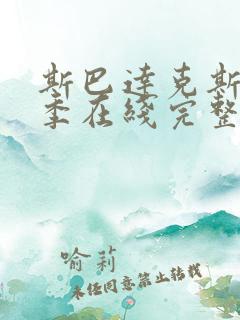 斯巴达克斯
季在线完整
喻莉
未经同意禁止转载